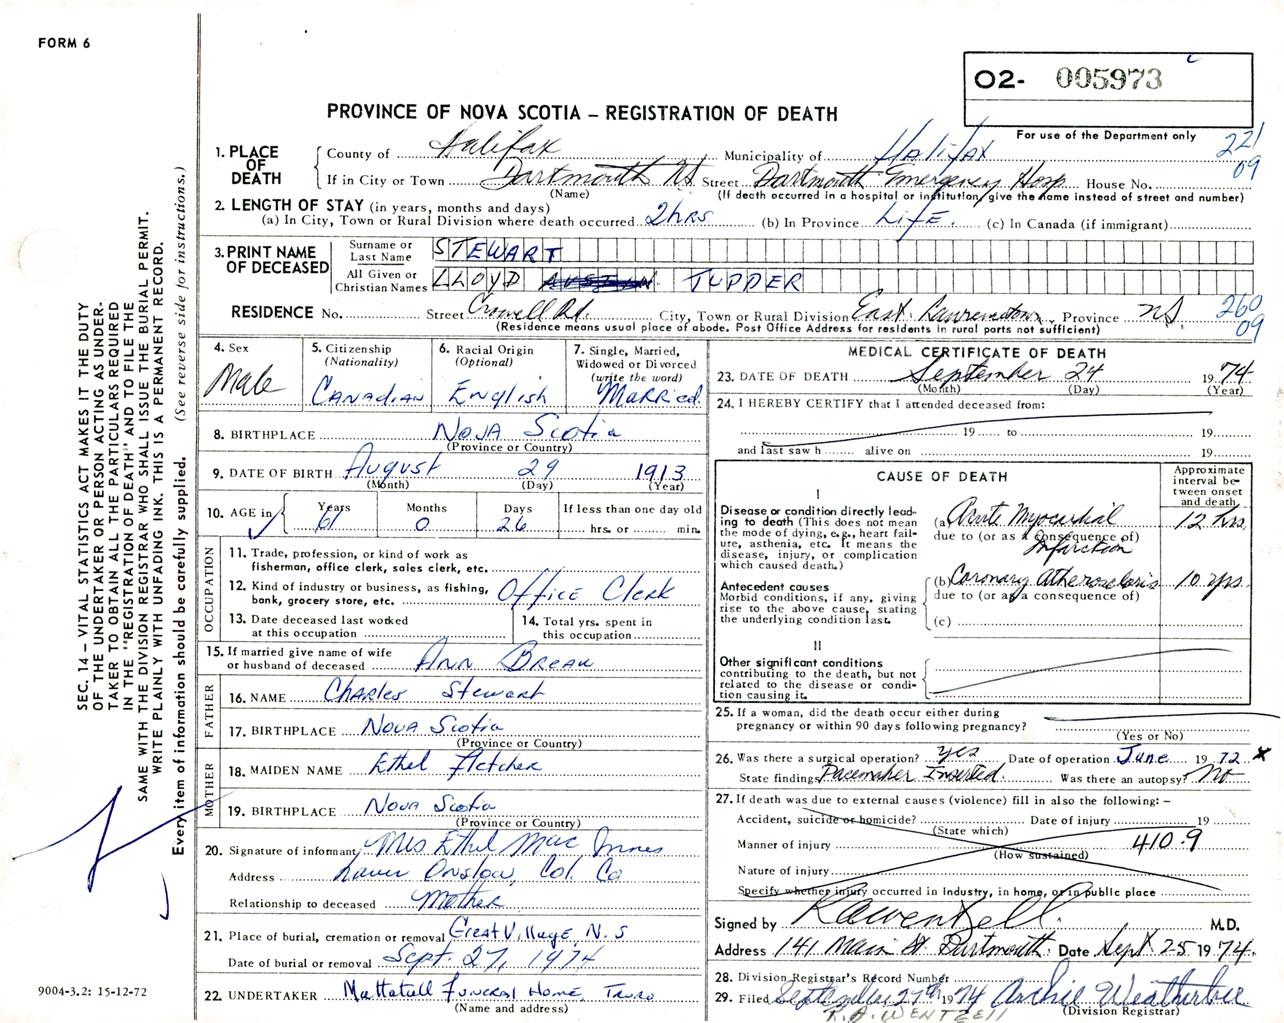 FORM 6
O2- 005973
PROVINCE OF NOVA SCOTIA – REGISTRATION OF DEATH
For use of the Department only
221
09
1. PLACE OF DEATH
County of Halifax Municipality of Halifax
If in City or Town Dartmouth NS Street Dartmouth Emergency Hosp House No.
(Name) (If death occurred in a hospital or institution, give the name instead of street and number)
2. LENGTH OF STAY (in years, months and days)
(a) In City, Town or Rural Division where death occurred 2 hrs (b) In Province Life (c) In Canada (if immigrant)
3. PRINT NAME OF DECEASED
Surname or Last Name STEWART
All Given or Christian Names LLOYD TUPPER
RESIDENCE No. Street Crowell Rd. City, Town or Rural Division East Lawrencetown, Province NS.
260
09
(Residence means usual place of abode. Post Office Address for residents in rural parts not sufficient)
4. Sex
Male
5. Citizenship
(Nationality)
Canadian
6. Racial Origin
(Optional)
English
7. Single, Married, Widowed or Divorced
(write the word)
Married
8. BIRTHPLACE Nova Scotia
(Province or Country)
9. DATE OF BIRTH August 29 1913
(Month) (Day) (Year)
10. AGE in Years Months Days If less than one day old
61 0 26 hrs. or min.
OCCUPATION
11. Trade, profession, or kind of work as
fisherman, office clerk, sales clerk, etc.
12. Kind of industry or business, as fishing,
bank, grocery store, etc. Office Clerk
13. Date deceased last worked
at this occupation
14. Total yrs. spent in
this occupation
15. If married give name of wife
or husband of deceased Ann Breau
FATHER
16. NAME Charles Stewart
17. BIRTHPLACE Nova Scotia
(Province or Country)
MOTHER
18. MAIDEN NAME Ethel Fletcher
19. BIRTHPLACE Nova Scotia
(Province or Country)
20. Signature of informant Mrs Ethel Mac Innes
Address Lower Onslow, Col. Co
Relationship to deceased Mother
21. Place of burial, cremation or removal Great Village, N.S
Date of burial or removal Sept. 27, 1974
22. UNDERTAKER Mattatall Funeral Home, Truro
(Name and address)
MEDICAL CERTIFICATE OF DEATH
23. DATE OF DEATH September 24 1974
(Month) (Day) (Year)
24. I HEREBY CERTIFY that I attended deceased from:
19 to 19
and last saw h alive on 19
CAUSE OF DEATH
Approximate interval between onset and death
I
Disease or condition directly leading to death (This does not mean the mode of dying, e.g., heart failure, asthenia, etc. It means the disease, injury, or complication which caused death.)
(a) Acute Myocardial Infarction 12 hrs
due to (or as a consequence of)
Antecedent causes
Morbid conditions, if any, giving rise to the above cause, stating the underlying condition last.
(b) Coronary Atherosclerosis 10 yrs.
due to (or as a consequence of)
(c)
II
Other significant conditions
contributing to the death, but not
related to the disease or condition causing it.
25. If a woman, did the death occur either during
pregnancy or within 90 days following pregnancy?
(Yes or No)
26. Was there a surgical operation? yes Date of operation June 1972 x
State findings Pacemaker Inserted. Was there an autopsy? No
27. If death was due to external causes (violence) fill in also the following: –
Accident, suicide or homicide? Date of injury 19
(State which)
Manner of injury 410.9
(How sustained)
Nature of injury
Specify whether injury occurred in industry, in home, or in public place
Signed by R A Wentzell M.D.
Address 141 Main St. Dartmouth. Date Sept 25 1974.
28. Division Registrar's Record Number
29. Filed September 27th 1974 Archie Weatherbee
(Division Registrar)
R.A. WENTZELL
SEC. 14 – VITAL STATISTICS ACT MAKES IT THE DUTY
OF THE UNDERTAKER OR PERSON ACTING AS UNDER-
TAKER TO OBTAIN ALL THE PARTICULARS REQUIRED
IN THE "REGISTRATION OF DEATH" AND TO FILE THE
SAME WITH THE DIVISION REGISTRAR WHO SHALL ISSUE THE BURIAL PERMIT.
WRITE PLAINLY WITH UNFADING INK. THIS IS A PERMANENT RECORD.
Every item of information should be carefully supplied. (See reverse side for instructions.)
9004-3.2: 15-12-72